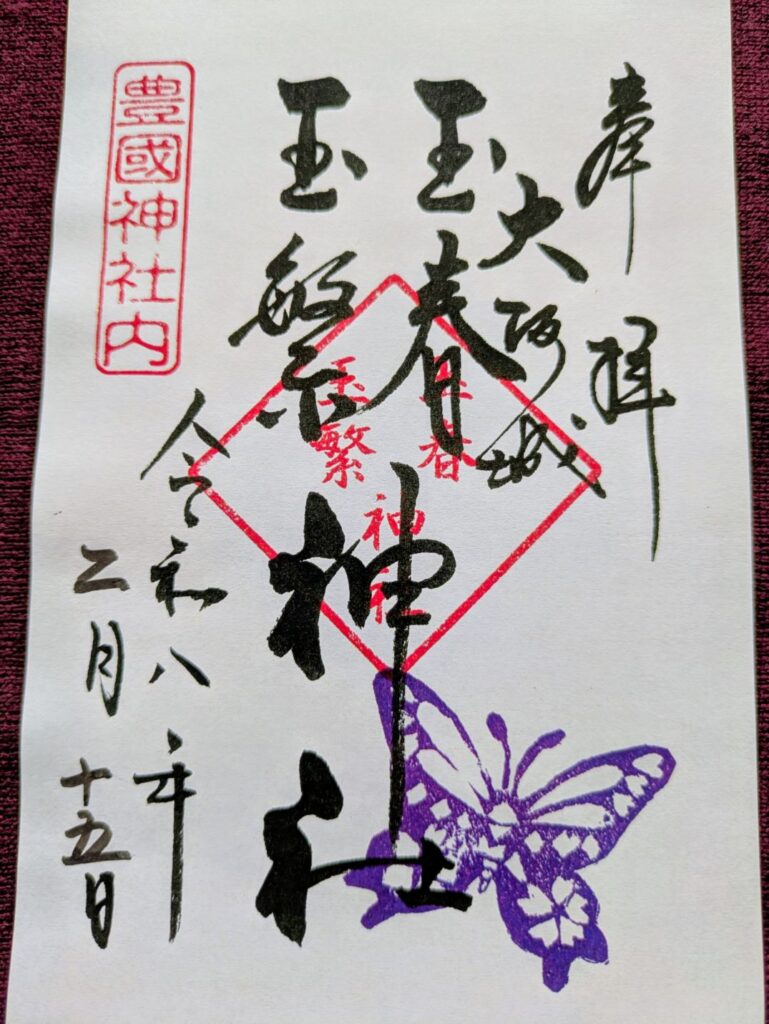 奉拝
大阪城
玉春
玉繁
神社
玉春
玉繁
神社
豊國神社内
令和八年
二月十五日